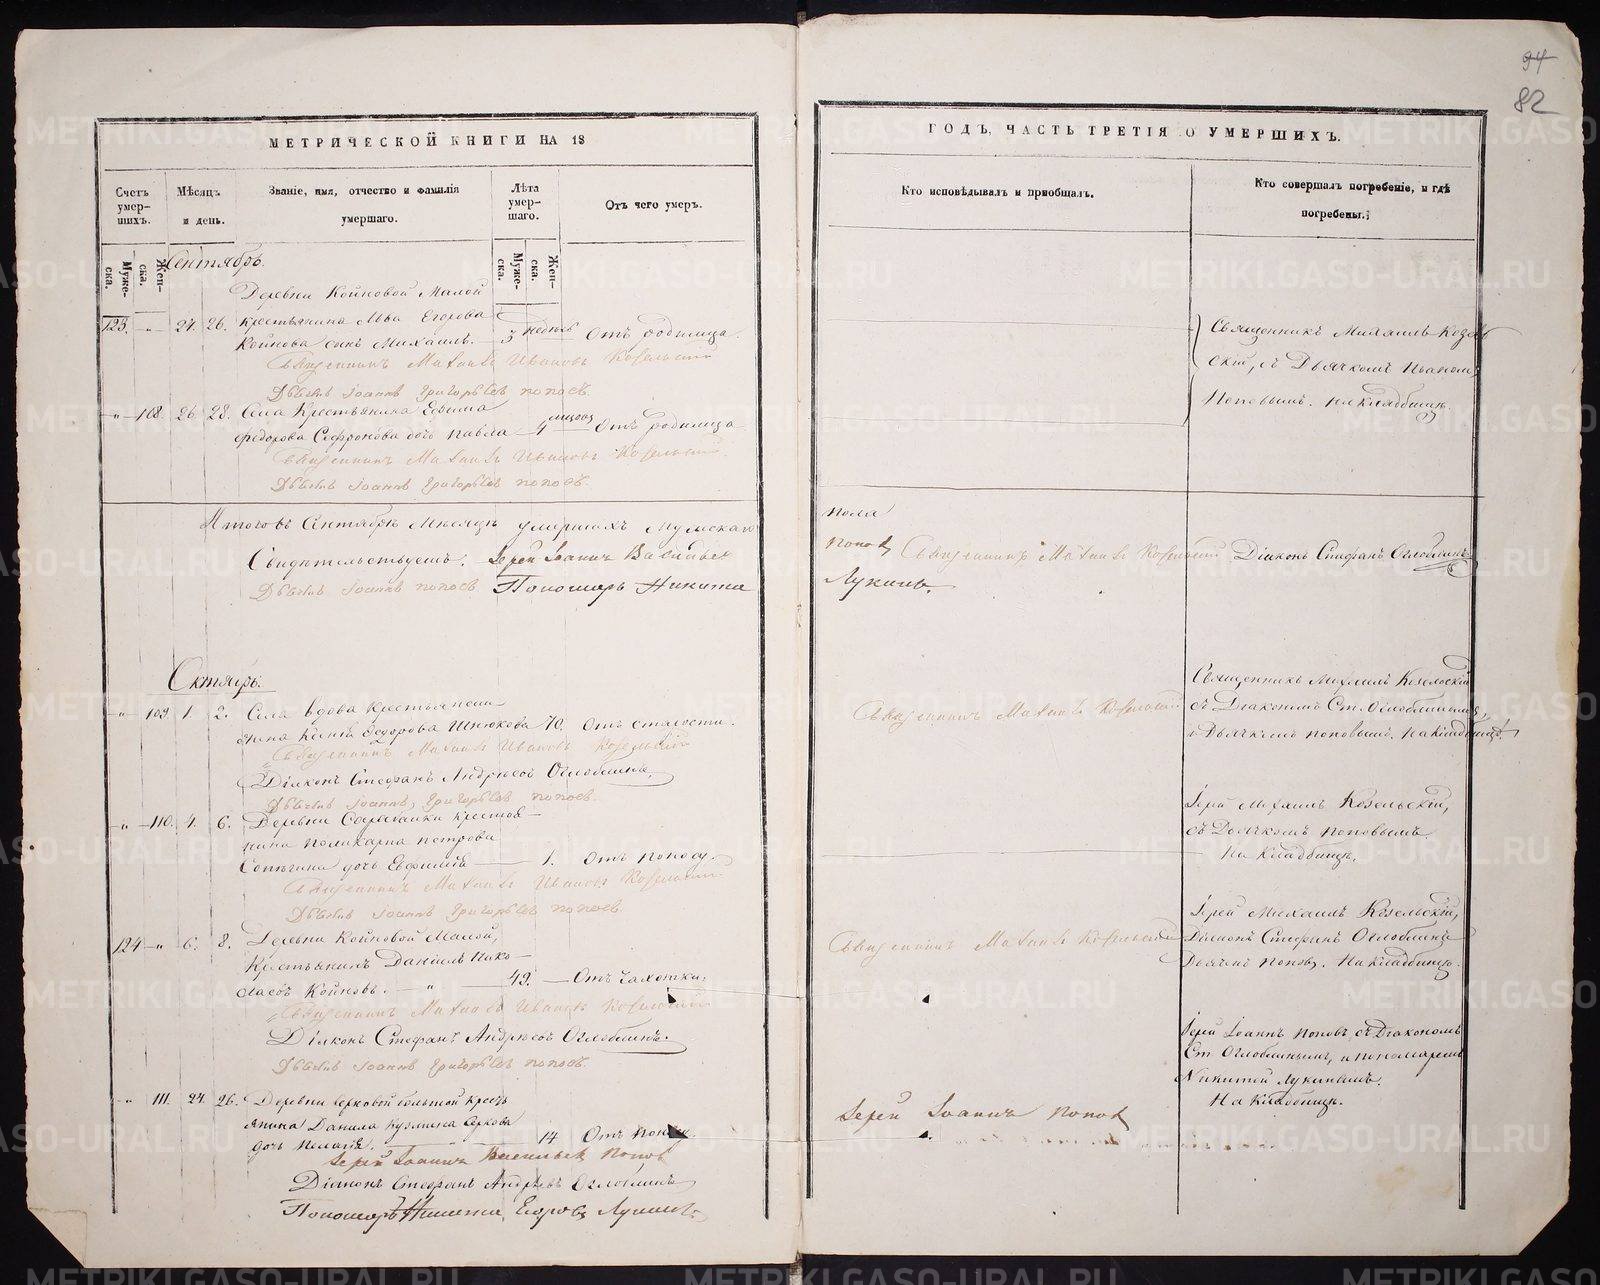 94
82
МЕТРИЧЕСКОЙ КНИГИ НА 18
ГОДЪ, ЧАСТЬ ТРЕТІЯ О УМЕРШИХЪ.
Счетъ умер-шихъ.
Мѣсяцъ и день.
Званіе, имя, отчество и фамилія умершаго.
Лѣта умер-шаго.
Отъ чего умеръ.
Кто исповѣдывалъ и пріобщалъ.
Кто совершалъ погребеніе, и гдѣ погребены.
Муже-ска.
Жен-ска.
Муже-ска.
Жен-ска.
Сентябрь.
Деревни Койновой Малой
123. " 24. 26. крестьянина Льва Егорова
Койнова сынъ Михаилъ. 3 недѣль Отъ родимца.
Священникъ Михаилъ Ивановъ Козельскій
Дьячекъ Іоаннъ Григорьевъ Поповъ.
Священникъ Михаилъ Козель
скій, съ Дьячкомъ Иваномъ
Поповымъ. На кладбищѣ.
" 108. 26. 28. Села Крестьянина Ефима
Федорова Сафронова дочь Павла 4 месяца Отъ родимца
Священникъ Михаилъ Ивановъ Козельскій.
Дьячекъ Іоаннъ Григорьевъ Поповъ.
Итого въ Сентябрѣ Мѣсяцѣ умершихъ Мужскаго
пола
Свидѣтельствуемъ: Іерей Іоаннъ Васильев
Поповъ Священникъ Михаилъ Козельскій Діаконъ Стефанъ Оглоблинъ
Дьячекъ Іоаннъ Поповъ Пономарь Никита
Лукинъ.
Октябрь.
" 109. 1. 2. Села вдова крестьянская
жена Ксенія Федорова 70. Отъ старости.
Священникъ Михаилъ Ивановъ Козельскій
Діаконъ Стефанъ Андреевъ Оглоблинъ
Дьячекъ Іоаннъ Григорьевъ Поповъ.
Священникъ Михаилъ Козельскій
Священникъ Михаилъ Козельскій
съ Діакономъ Ст. Оглоблинымъ,
и Дьячкомъ Поповымъ. На кладбищѣ.
" 110. 4. 6. Деревни крестья-
нина Поликарпа Петрова
дочь Евфимія 1. Отъ поносу.
Священникъ Михаилъ Ивановъ Козельскій
Дьячекъ Іоаннъ Григорьевъ Поповъ.
Іерей Михаилъ Козельскій,
съ Дьячкомъ Поповымъ
На Кладбищѣ.
124 " 6. 8. Деревни Койновой Малой,
Крестьянинъ Даніилъ Нико-
лаевъ Койновъ. " 49. Отъ чахотки.
Священникъ Михаилъ Ивановъ Козельскій
Діаконъ Стефанъ Андреевъ Оглоблинъ.
Дьячекъ Іоаннъ Григорьевъ Поповъ.
Священникъ Михаилъ Козельскій
Іерей Михаилъ Козельскій,
Діаконъ Стефанъ Оглоблинъ
Дьячекъ Поповъ. На Кладбищѣ.
" 111. 24. 26. Деревни Серковой большой крест
янина Данила Кузмина Серкова
дочь Пелагія. 14 Отъ поносу.
Іерей Іоаннъ Васильевъ Поповъ
Діаконъ Стефанъ Андреевъ Оглоблинъ
Пономарь Никита Егоровъ Лукинъ.
Іерей Іоаннъ Поповъ
Іерей Іоаннъ Поповъ съ Діакономъ
Ст. Оглоблинымъ, и пономаремъ
Никитой Лукинымъ.
На Кладбищѣ.
METRIKI.GASO-URAL.RU